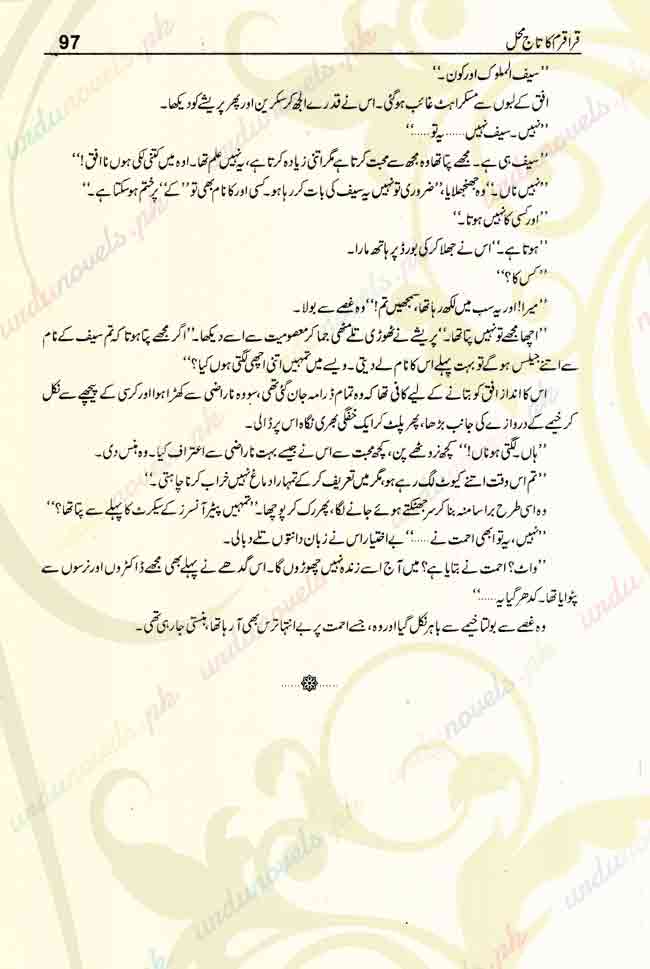 قراقرم کا تاج محل
97
’’سیف الملوک اور کون۔‘‘
افق کے لبوں سے مسکراہٹ غائب ہو گئی۔ اس نے قدرے الجھ کر سکرین اور پھر پریشے کو دیکھا۔
’’نہیں۔ سیف نہیں...... یہ تو......‘‘
’’سیف ہی ہے۔ مجھے پتا تھا وہ مجھ سے محبت کرتا ہے مگر اتنی زیادہ کرتا ہے، یہ نہیں علم تھا۔ اوہ میں کتنی لکی ہوں نا افق!‘‘
’’نہیں ناں۔‘‘ وہ جھنجھلایا، ’’ضروری تو نہیں یہ سیف کی بات کر رہا ہو۔ کسی اور کا نام بھی تو ’’کے‘‘ پر ختم ہو سکتا ہے۔‘‘
’’اور کسی کا نہیں ہوتا۔‘‘
’’ہوتا ہے۔‘‘ اس نے جھلا کر کی بورڈ پر ہاتھ مارا۔
’’کس کا؟‘‘
’’میرا! اور یہ سب میں لکھ رہا تھا، سمجھیں تم!‘‘ وہ غصے سے بولا۔
’’اچھا مجھے تو نہیں پتا تھا۔‘‘ پریشے نے ٹھوڑی تلے مٹھی جما کر معصومیت سے اسے دیکھا۔ ’’اگر مجھے پتا ہوتا کہ تم سیف کے نام
سے اتنے جیلس ہو گے تو بہت پہلے اس کا نام لے دیتی۔ ویسے میں تمہیں اتنی اچھی لگتی ہوں کیا؟‘‘
اس کا انداز افق کو بتانے کے لیے کافی تھا کہ وہ تمام ڈرامہ جان گئی تھی، سو وہ ناراضی سے کھڑا ہوا اور کرسی کے پیچھے سے نکل
کر خیمے کے دروازے کی جانب بڑھا، پھر پلٹ کر ایک خفگی بھری نگاہ اس پر ڈالی۔
’’ہاں۔ لگتی ہو ناں!‘‘ کچھ نروٹھے پن، کچھ محبت سے اس نے جیسے بہت ناراضی سے اعتراف کیا۔ وہ ہنس دی۔
’’تم اس وقت اتنے کیوٹ لگ رہے ہو، مگر میں تعریف کر کے تمہارا دماغ نہیں خراب کرنا چاہتی۔‘‘
وہ اسی طرح برا سا منہ بنا کر سر جھٹکتے ہوئے جانے لگا، پھر رک کر پوچھا۔ ’’تمہیں پیٹر آنسرز کے سیکرٹ کا پہلے سے پتا تھا؟‘‘
’’نہیں، یہ تو ابھی احمت نے......‘‘ بے اختیار اس نے زبان دانتوں تلے دبا لی۔
’’واٹ؟ احمت نے بتایا ہے؟ میں آج اسے زندہ نہیں چھوڑوں گا۔ اس گدھے نے پہلے بھی مجھے ڈاکٹروں اور نرسوں سے
پٹوایا تھا۔ کدھر گیا یہ......‘‘
وہ غصے سے بولتا خیمے سے باہر نکل گیا اور وہ، جسے احمت پر بے انتہا ترس بھی آ رہا تھا، ہنستی جا رہی تھی۔
urdunovels.pk